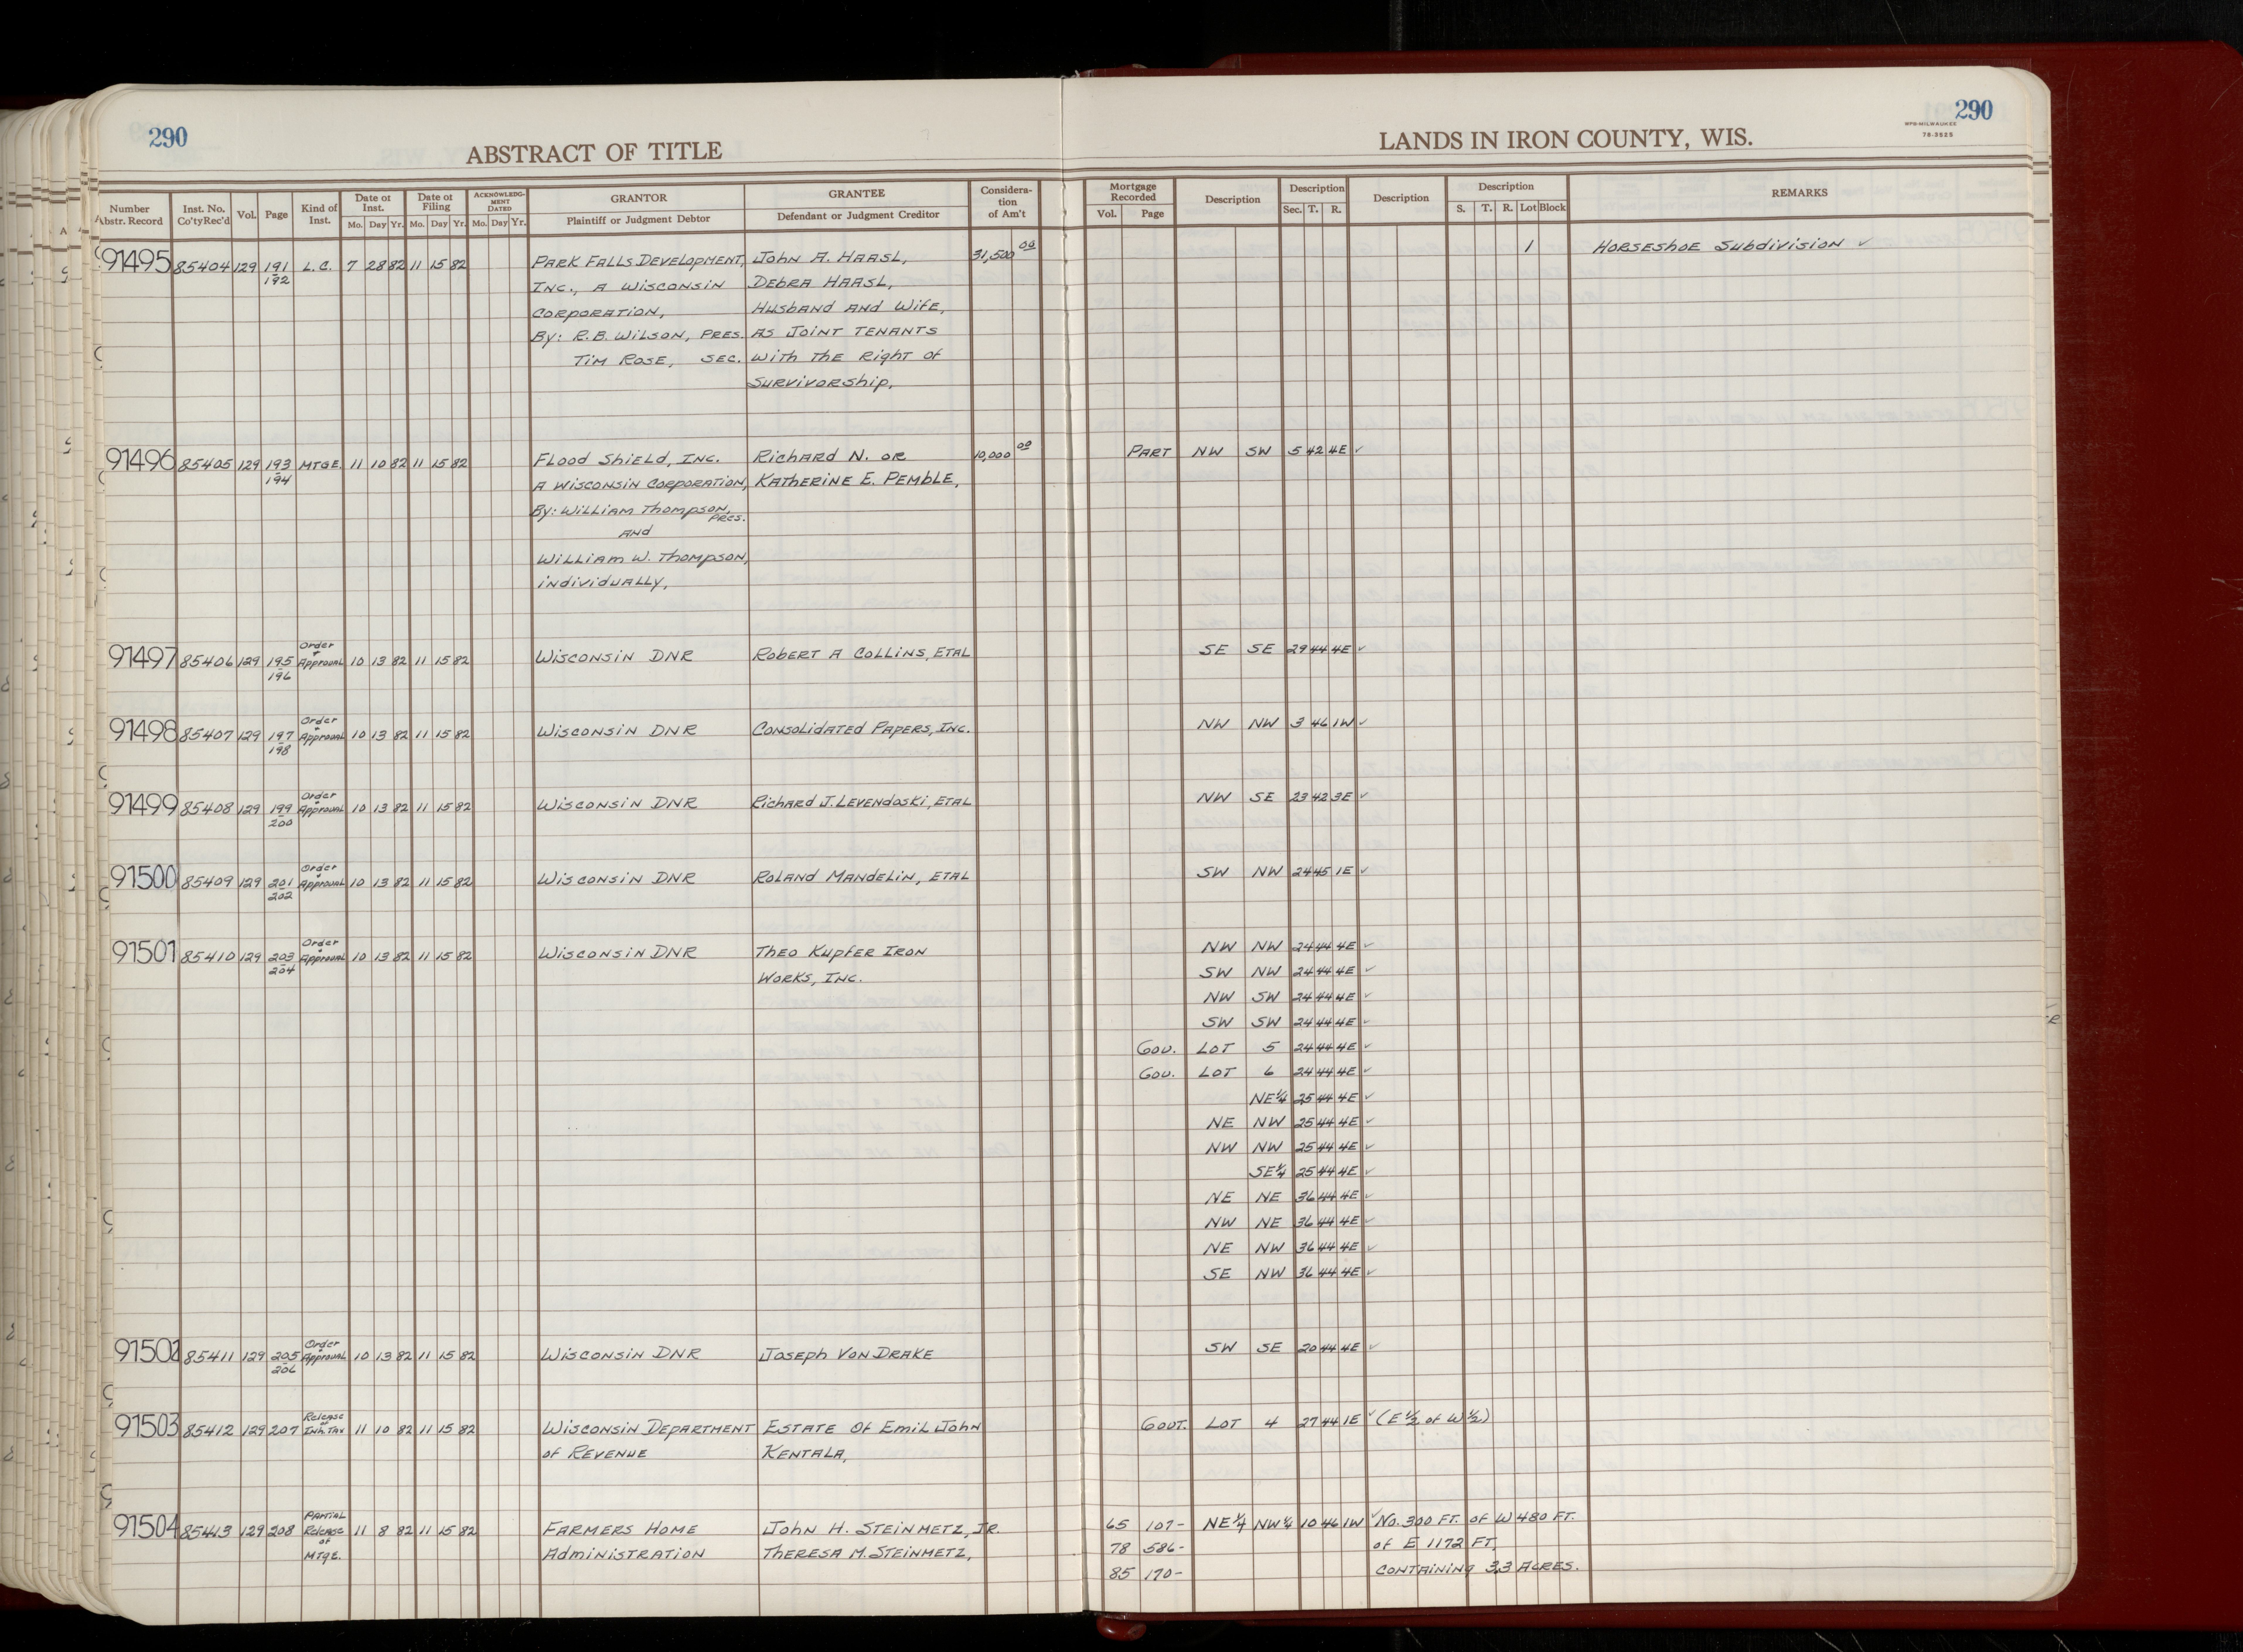 290
ABSTRACT OF TITLE
LANDS IN IRON COUNTY, WIS.
290
WPB-MILWAUKEE
78-3525
Number Abstr. Record | Inst. No. Co'ty Rec'd | Vol. | Page | Kind of Inst. | Date of Inst. Mo. Day Yr. | Date of Filing Mo. Day Yr. | ACKNOWLEDGMENT DATED Mo. Day Yr. | GRANTOR Plaintiff or Judgment Debtor | GRANTEE Defendant or Judgment Creditor | Consideration of Am't | Mortgage Recorded Vol. Page | Description | Description Sec. T. R. | Description | Description S. T. R. Lot Block | REMARKS
91495 85404 129 191 L.C. 7 28 82 11 15 82 PARK FALLS DEVELOPMENT, JOHN A. HAASL, 31,500 00 1 HORSESHOE SUBDIVISION ✓
192 INC., A WISCONSIN DEBRA HAASL,
CORPORATION, HUSBAND AND WIFE,
By: R.B. WILSON, PRES. AS JOINT TENANTS
TIM ROSE, SEC. WITH THE RIGHT OF
SURVIVORSHIP,
91496 85405 129 193 MTGE. 11 10 82 11 15 82 FLOOD SHIELD, INC. RICHARD N. OR 10,000 00 PART NW SW 5 42 4E ✓
194 A WISCONSIN CORPORATION, KATHERINE E. PEMBLE,
By: WILLIAM THOMPSON, PRES.
AND
WILLIAM W. THOMPSON,
INDIVIDUALLY,
91497 85406 129 195 Order + Approval 10 13 82 11 15 82 WISCONSIN DNR ROBERT A COLLINS, ETAL SE SE 29 44 4E ✓
196
91498 85407 129 197 Order + Approval 10 13 82 11 15 82 WISCONSIN DNR CONSOLIDATED PAPERS, INC. NW NW 3 46 1W ✓
198
91499 85408 129 199 Order + Approval 10 13 82 11 15 82 WISCONSIN DNR RICHARD J. LEVENDOSKI, ETAL NW SE 23 42 3E ✓
200
91500 85409 129 201 Order + Approval 10 13 82 11 15 82 WISCONSIN DNR ROLAND MANDELIN, ETAL SW NW 24 45 1E ✓
202
91501 85410 129 203 Order + Approval 10 13 82 11 15 82 WISCONSIN DNR THEO KUPFER IRON NW NW 24 44 4E ✓
204 WORKS, INC. SW NW 24 44 4E ✓
NW SW 24 44 4E ✓
SW SW 24 44 4E ✓
GOV. LOT 5 24 44 4E ✓
GOV. LOT 6 24 44 4E ✓
NE¼ 25 44 4E ✓
NE NW 25 44 4E ✓
NW NW 25 44 4E ✓
SE¼ 25 44 4E ✓
NE NE 36 44 4E ✓
NW NE 36 44 4E ✓
NE NW 36 44 4E ✓
SE NW 36 44 4E ✓
91502 85411 129 205 Order + Approval 10 13 82 11 15 82 WISCONSIN DNR JOSEPH VON DRAKE SW SE 20 44 4E ✓
206
91503 85412 129 207 Release of Inh. Tax 11 10 82 11 15 82 WISCONSIN DEPARTMENT ESTATE OF EMIL JOHN GOVT. LOT 4 27 44 1E ✓ (E½ of W½)
OF REVENUE KENTALA,
91504 85413 129 208 PARTIAL Release of MTGE. 11 8 82 11 15 82 FARMERS HOME JOHN H. STEINMETZ, JR. 65 107- NE¼ NW¼ 10 46 1W ✓ NO. 300 FT. OF W 480 FT.
ADMINISTRATION THERESA M. STEINMETZ, 78 586- OF E 1172 FT,
85 170- CONTAINING 3.3 ACRES.